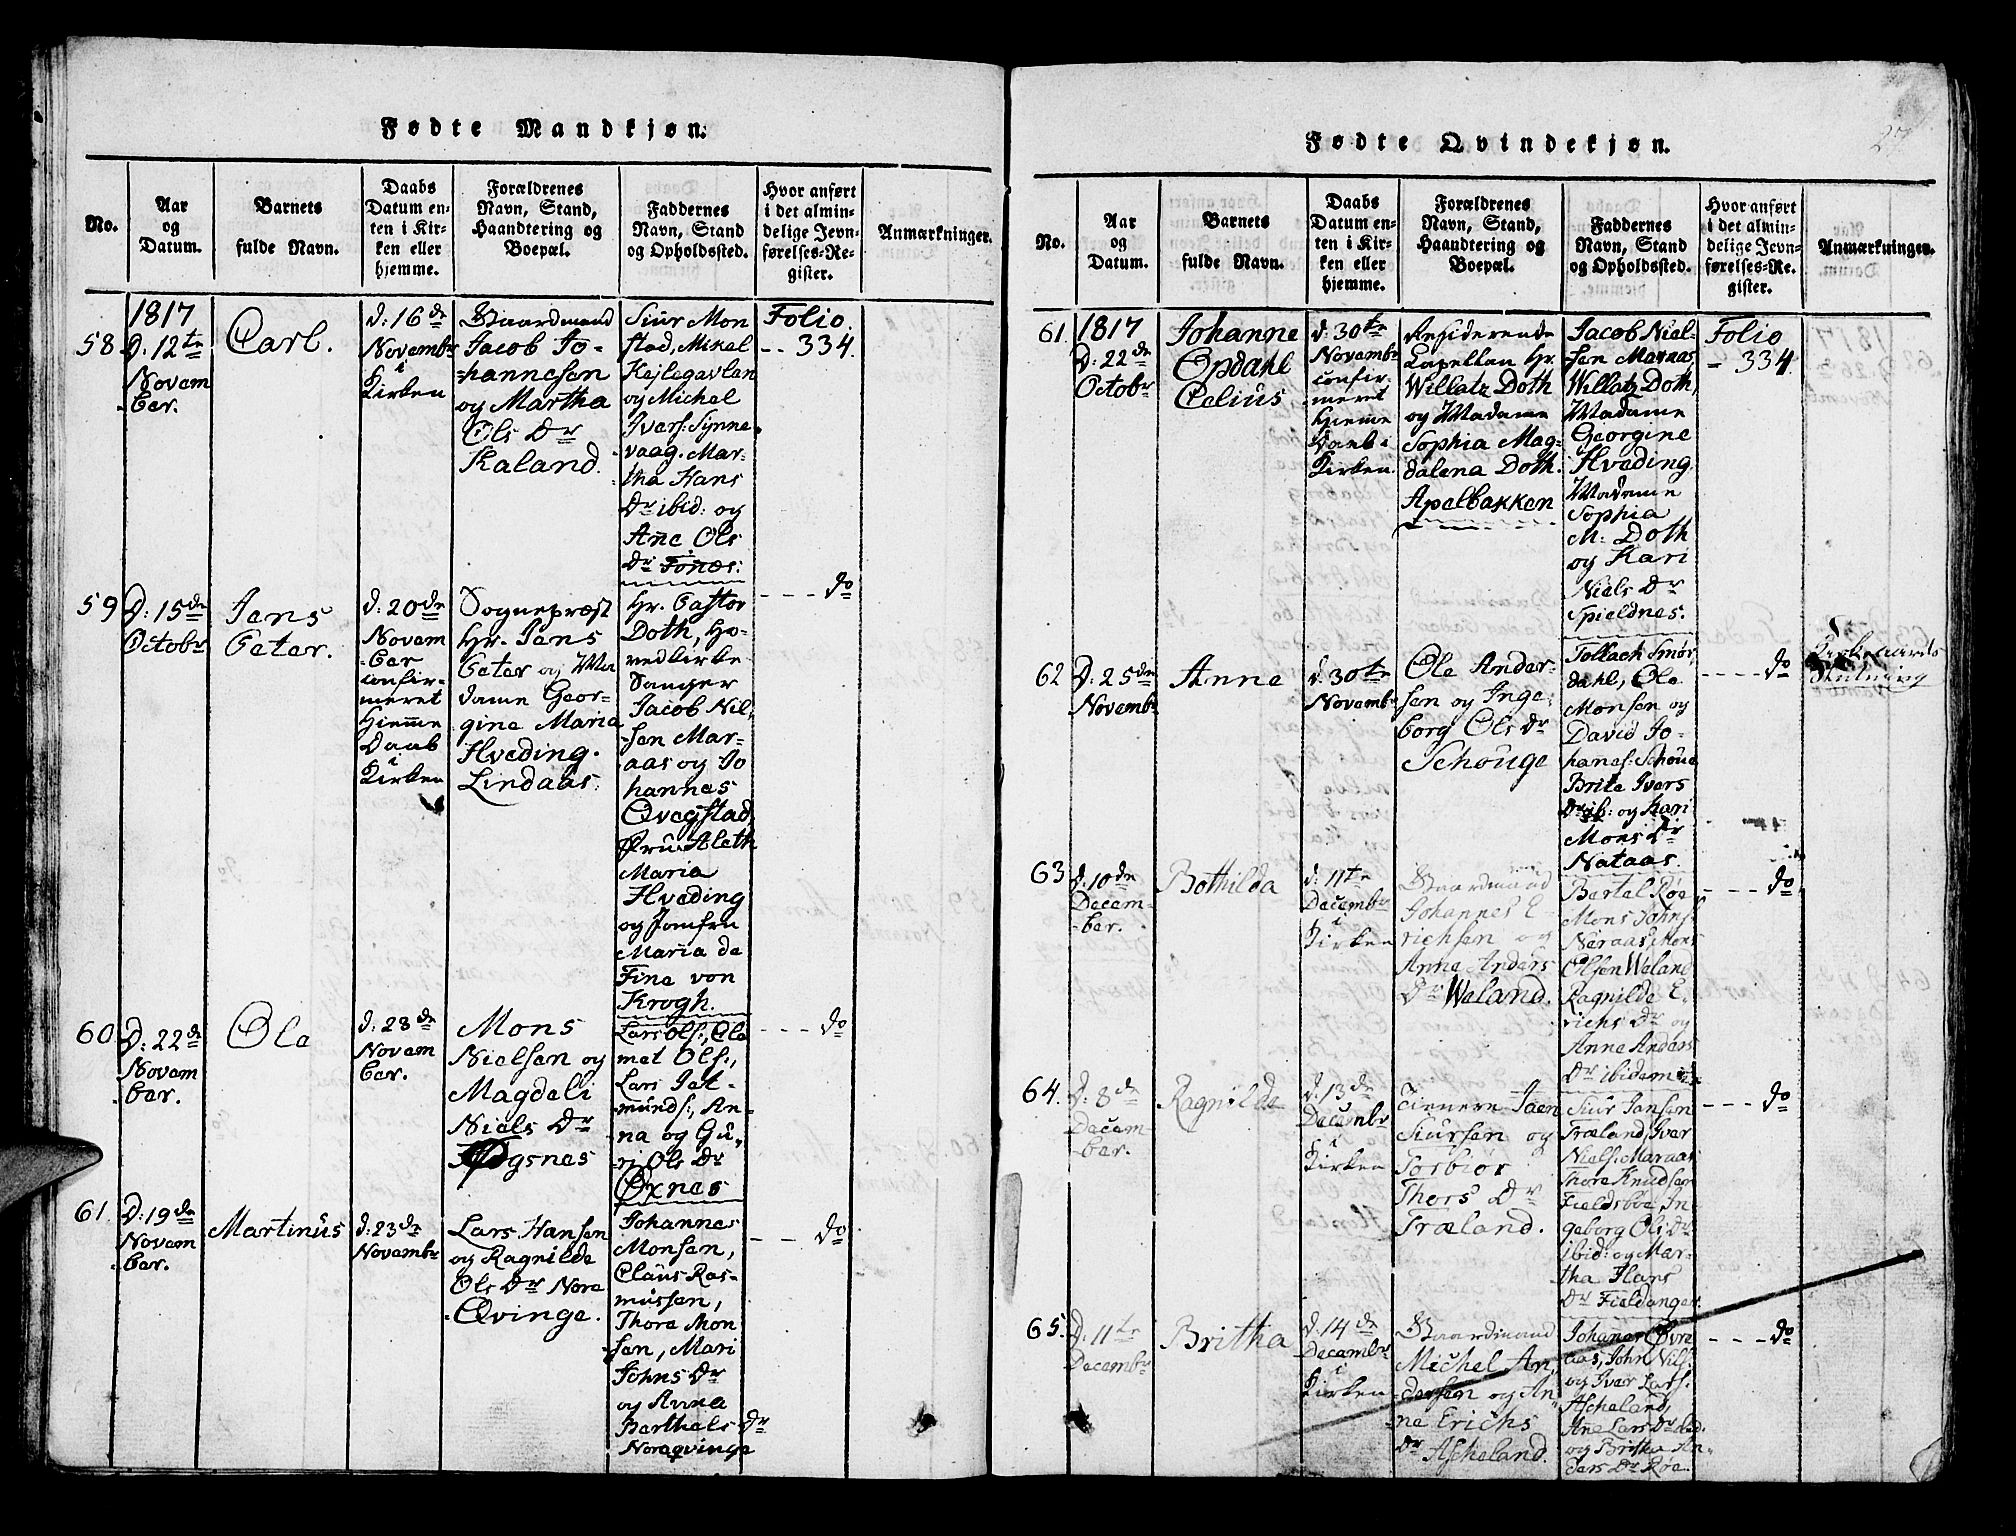 Fødte Mandkjøn.
No.
Aar
og
Datum.
Barnets
fulde Navn.
Daabs
Datum en-
ten i Kir-
ken eller
hjemme.
Forældrenes
Navn, Stand,
Haandtering og
Boepæl.
Faddernes
Navn, Stand
og Opholdssted.
Hvor anført
i det almin-
delige Jevn-
førelses-Re-
gister.
Anmærkninger.
58
1817
D: 12te
Novem
ber.
Carl.
d: 16de
Novembr
i
Kirken
Gaardmand
Jacob Jo-
hannesen
og Martha
Ols Dr
Kaland.
Siur Mon
stad, Mikel
Kejlegavlen
og Michel
Ivers: Synne
vaag. Mar-
tha Hans
Dr ibid: og
Ane Ols
Dr Fonæs:
Folio
-- 334.
59
D: 15de
Octobr
Jens
Peter.
d: 20de
Novem
ber
confir-
meret
Hjemme
Daab
i
Kirken
Sognepræst
Hr. Jens
Peter og Ma
dame Geor-
gine Maria
Hveding.
Lindaas.
Hr. Pastor
Doth, Ho-
vedkirke-
Sanger
Jacob Nil-
sen Mar-
aas og Jo
hannes
Qvegstad
Fru Aleth
Maria
Hveding
og Jomfru
Maria de
Fine von
Krogh.
---- do
60
D: 22de
Novem
ber.
Ole
d: 23de
Novem
ber.
Mons
Nielsen og
Magdeli
Niels Dr
Fogsnes
Lars Ols:, Ole
met Ols:,
Lars Jet-
munds:, An-
na og Gu-
ri Ols Dr
Oxnes
---- do
61.
D: 19de
Novem
ber.
Martinus
d: 23de
Novembr
Lars Hansen
og Ragnilde
Ols Dr Nore
Qvinge.
Johannes
Monsen,
Claus Ras-
mussen,
Thore Mon
sen, Mari
Johns Dr
og Anna
Barthels Dr
Noreqvinge
---- do
Fødte Qvindekjøn.
27
No.
Aar
og
Datum.
Barnets
fulde Navn.
Daabs
Datum en-
ten i Kir-
ken eller
hjemme.
Forældrenes
Navn, Stand,
Haandtering og
Boepæl.
Faddernes
Navn, Stand
og Opholdssted.
Hvor anført
i det almin-
delige Jevn-
førelses-Re-
gister.
Anmærkninger.
61.
1817
D: 22de
Octobr
Johanne
Opdahl
Celius
d: 30te
Novembr
confir-
meret
Hjemme
Daab i
Kirken
Residerende
Capellan Hr.
Willatz Doth
og Madame
Sophia Mag-
dalena Doth.
Apelbakken
Jacob Niel-
sen Maraas
Willatz Doth,
Madame
Georgine
Hveding
Madame
Sophia
M: Doth
og Kari
Niels Dr
Spieldnes.
Folio
- 334.
62
D: 25de
Novembr
Anne
d: 30te
Novembr
Ole Ander-
sen og Inge-
borg Ols Dr
Schouge
Tollach Smør
dahl, Ole
Monsen og
David Jo-
hanes: Schoue
Brite Ivers
Dr ib: og Kari
Mons Dr
Nataas.
---- do
63
d: 10de
Decem-
ber.
Bothilda
d: 11te
Decembr
i
Kirken
Gaardmand
Johannes E-
richsen og
Anne Anders
Dr Weland.
Bertel Røe
Mons Johns:
Neraas, Mons
Olsen Weland
Ragnilde E-
richs Dr og
Anne Anders
Dr ibidem
---- do
64.
D: 8de
Decem-
ber.
Ragnilde
d: 13de
Decembr
i
Kirken
Tienere Joen
Siursen og
Torbiør
Thors Dr
Træland.
Siur Jansen
Træland, Iver
Niels: Maraas
Thore Knudsen
Fieldsboe, In
geborg Ols Dr
ibid: og Mar-
tha Hans
Dr Fieldanger
---- do
65.
D: 11te
Decembr
Britha
d: 14de
Decembr
i
Kirken
Gaardmand
Michel An-
dersen og An
ne Erichs
Dr Ascheland.
Johanes Øvre
aas, John Nils:
og Iver Lars:
Ascheland,
Ane Lars Dr ibid.
og Britha An-
ders Dr Røe.
---- do